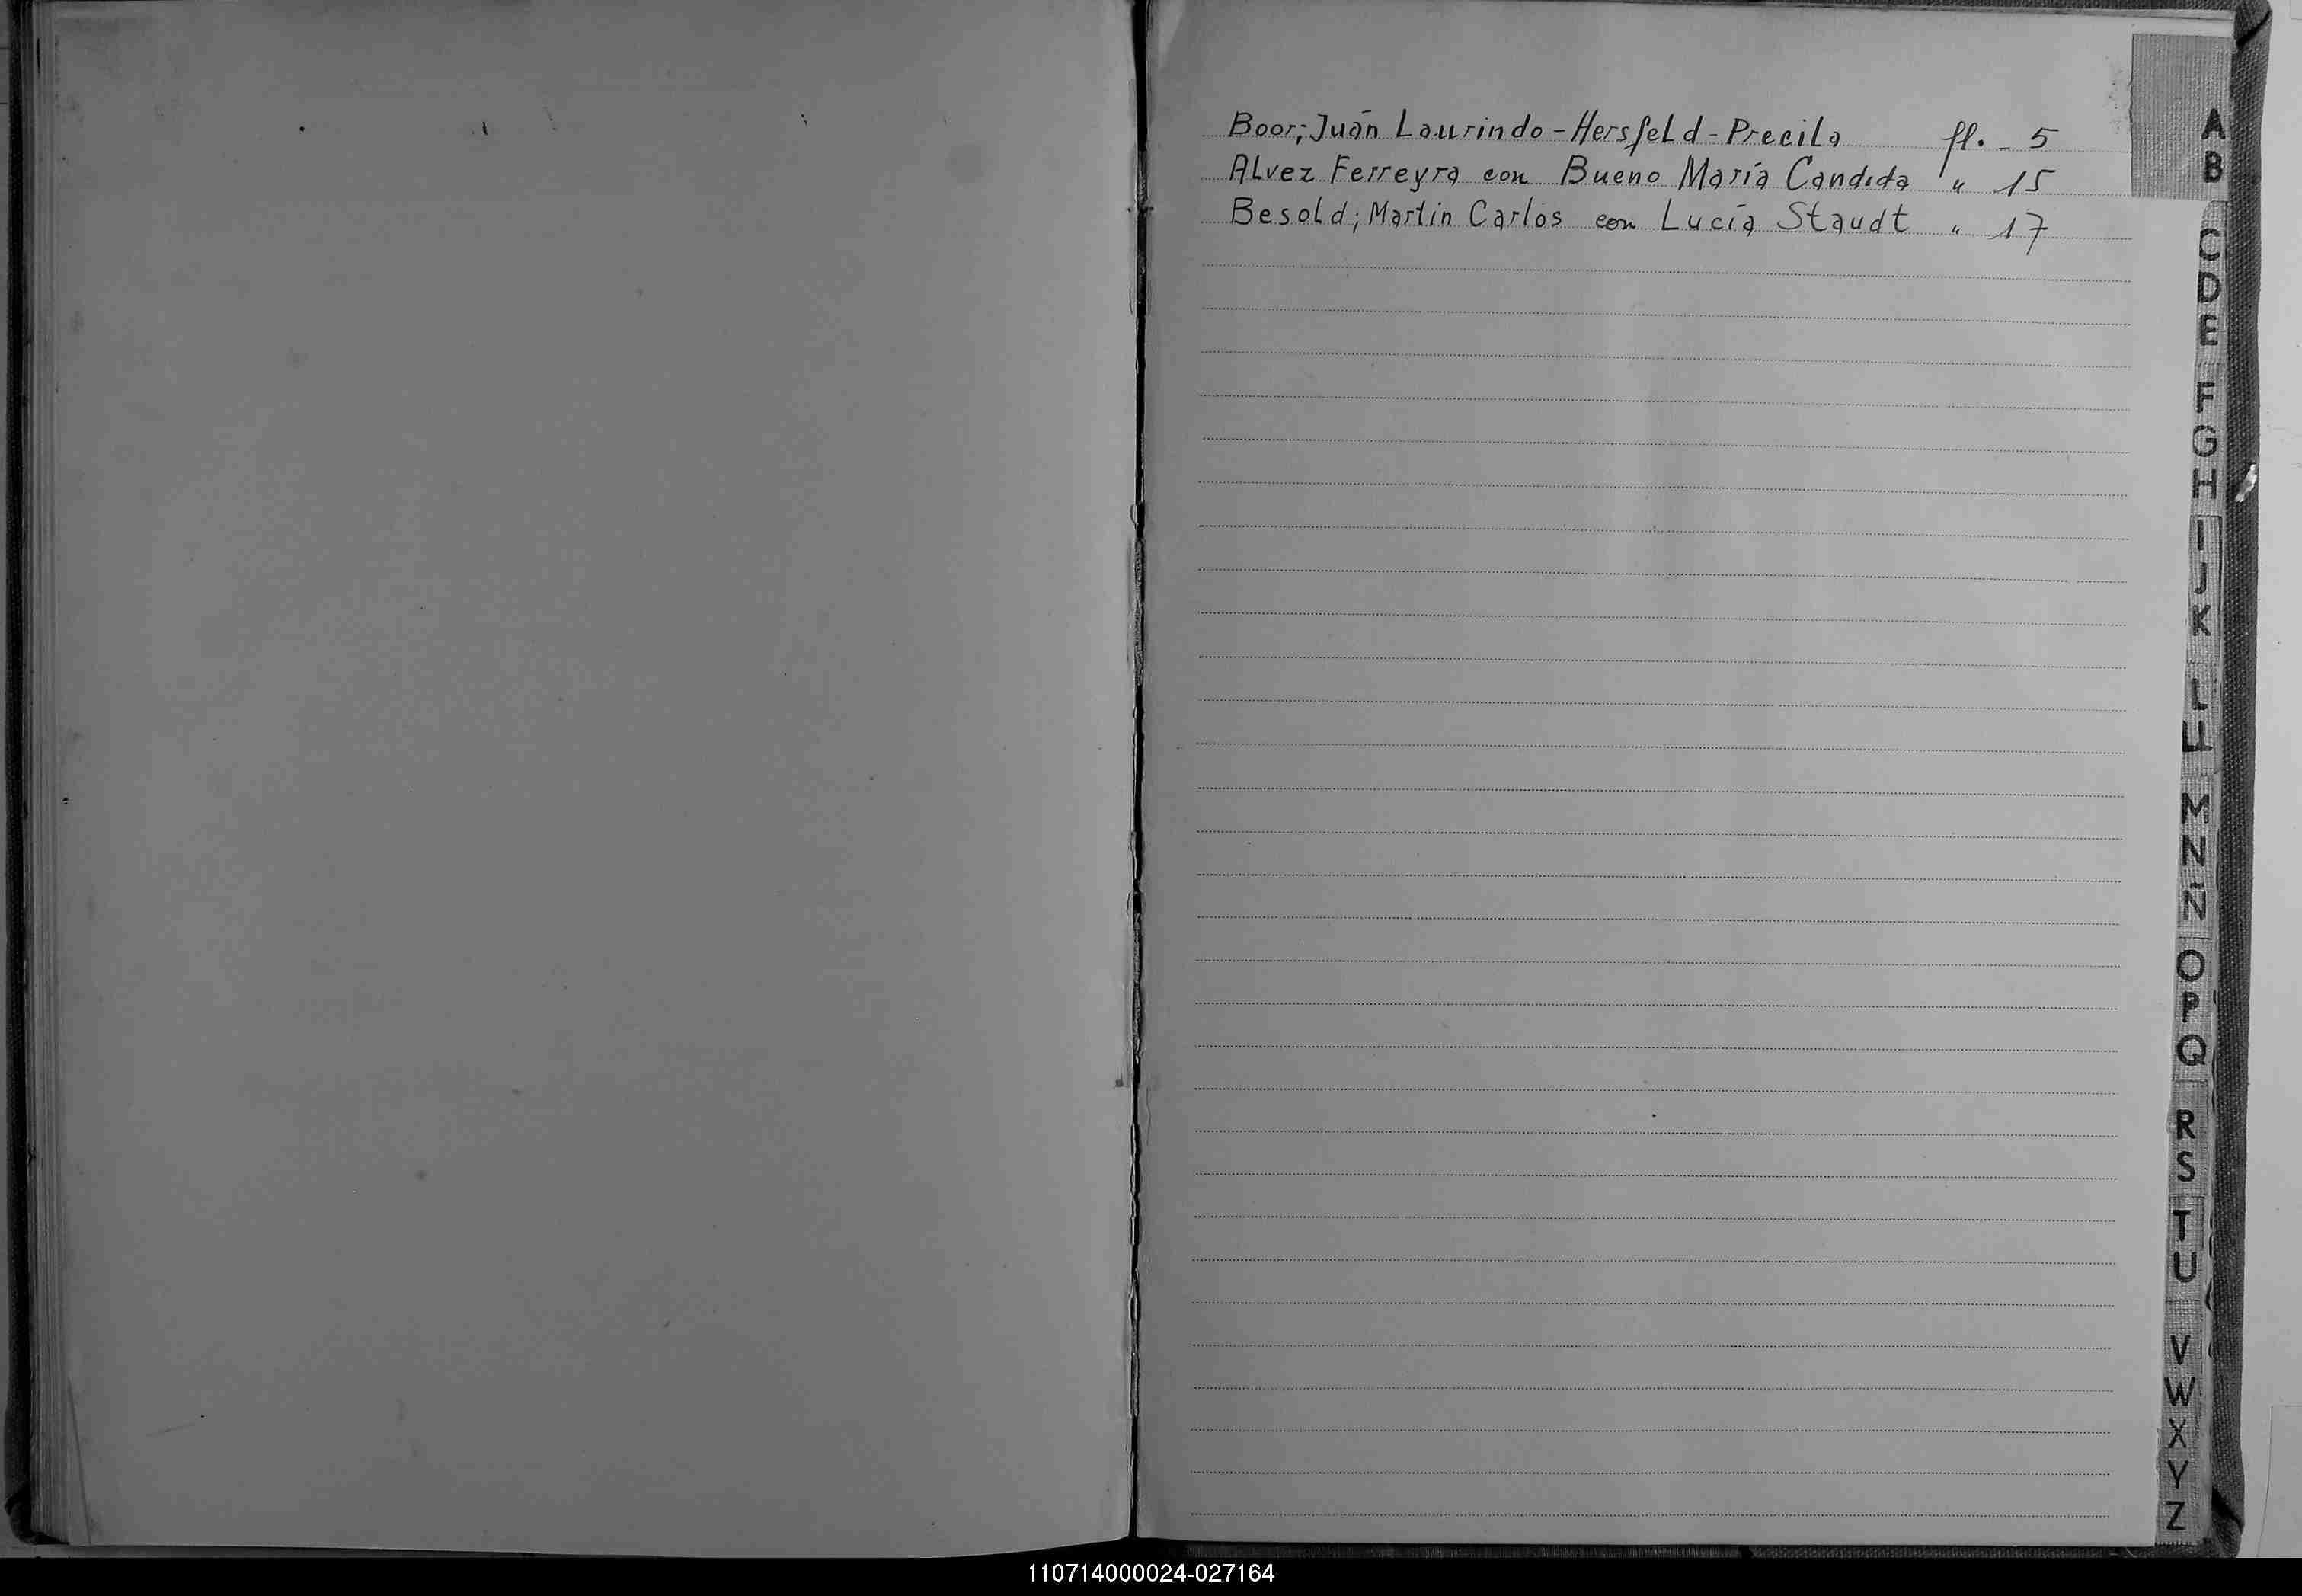 Boor; Juan Laurindo - Hersfeld - Precila fl. - 5
Alvez Ferreyra con Bueno María Candida " 15
Besold; Martin Carlos con Lucía Staudt " 17
A
B
C
D
E
F
G
H
I
J
K
L
LL
M
N
Ñ
O
P
Q
R
S
T
U
V
W
X
Y
Z
110714000024-027164